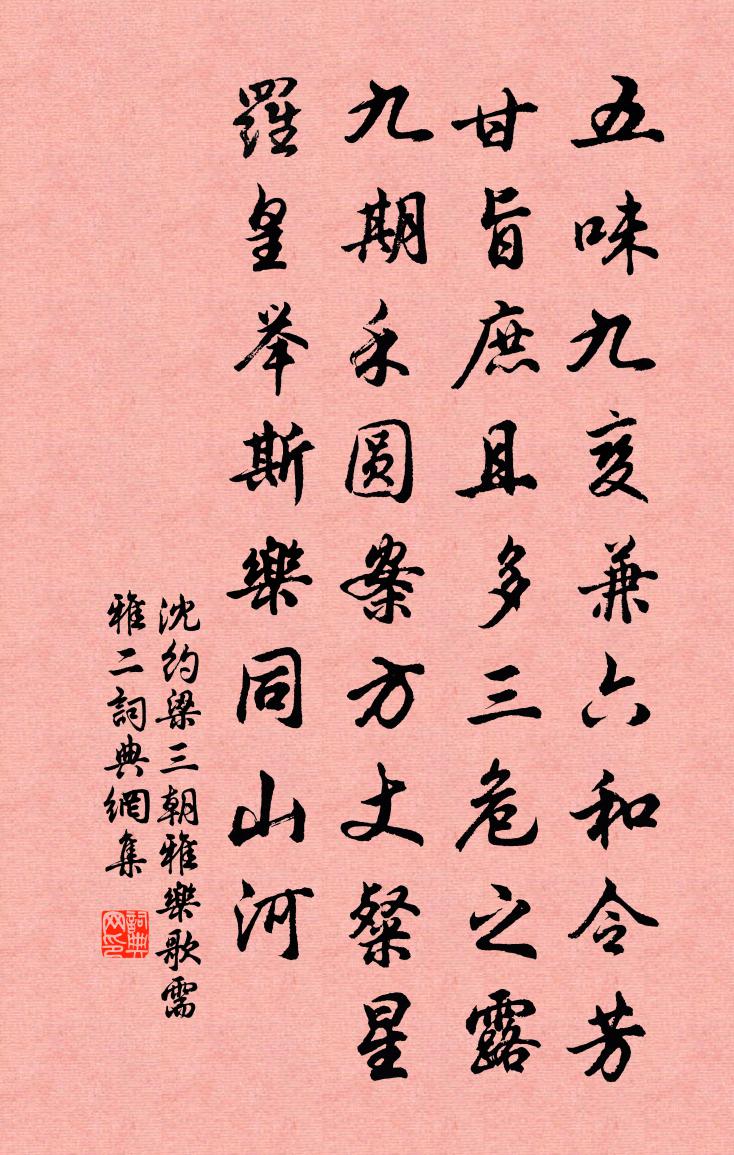 五味九変兼六和令芳
甘旨庶且多三危之露
九期禾圆案方丈粲星
羅皇举斯樂同山河
沈约梁三朝雅樂歌需
雅二詞典網集
詞典网印